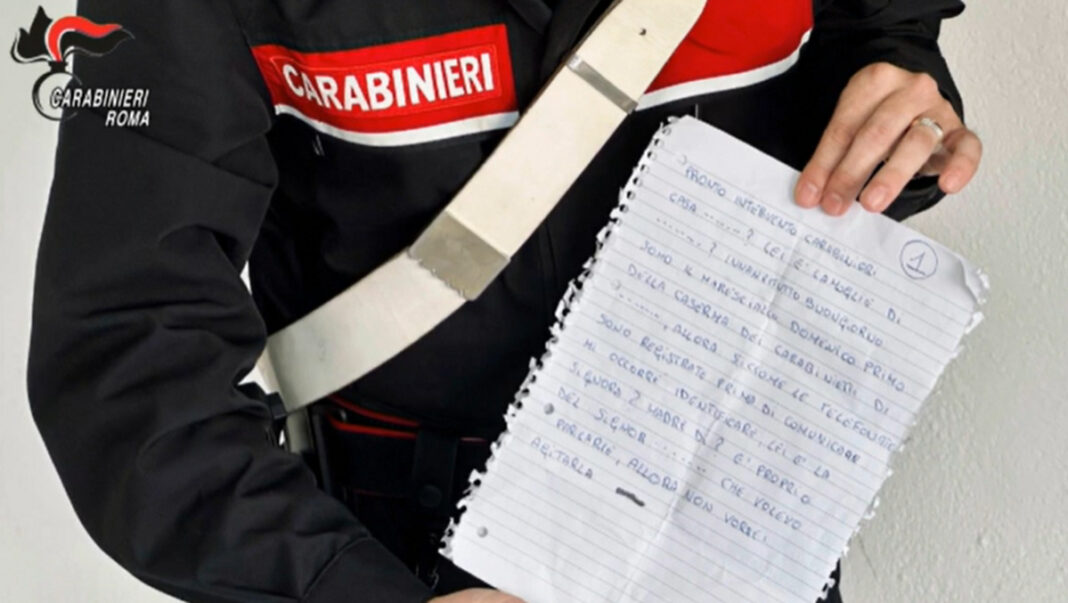 CARABINIERI
ROMA
CARABINIERI
1
PRONTO INTERVENTO CARABINIERI
CASA ........? LEI È LA MOGLIE DI
.........? INNANZITUTTO BUONGIORNO
SONO IL MARESCIALLO DOMENICO PRIMO
DELLA CASERMA DEI CARABINIERI DI
........, ALLORA SICCOME LE TELEFONATE
SONO REGISTRATE PRIMA DI COMUNICARE
MI OCCORRE IDENTIFICARE, LEI È LA
SIGNORA? MADRE DI? È PROPRIO
DEL SIGNOR ........ CHE VOLEVO
PARLARLE, ALLORA NON VORREI
AGITARLA